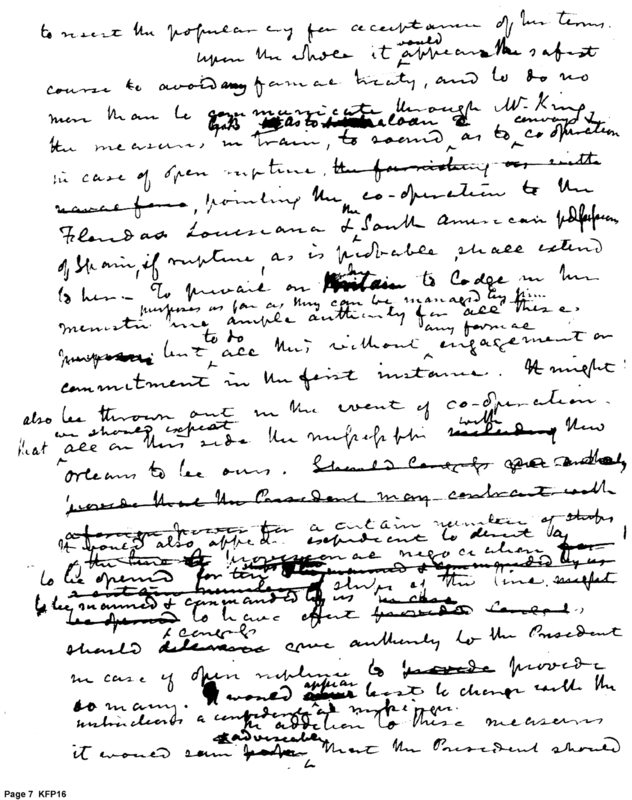 to resist the popular cry for acceptance of her terms.
would
Upon the whole it appears the safest
course to avoid any formal treaty, and to do no
more than to communicate through Mr. King
as to a loan & convoys &
the measures in train, to sound as to co operation
in case of open rupture, the furnishing us with
naval force, pointing the co-operation to the
the
Floridas Louisiana & South American possessions
of Spain, if rupture, as is probable, shall extend
to her. To prevail on Britain to lodge in her
purposes as far as they can be managed by him
minister here ample authority for all these
to do any formal
purposes but all this without engagement or
commitment in the first instance. It might
also be thrown out in the event of co-operation.
we should expect with
that all on this side the mississippi including New
Orleans to be ours. Should Congress give authority
provide that the President may contract with
a foreign power for a certain number of ships
It would also appear expedient to direct a
of the line provisional negociation for
to be opened for the manned & commanded by us
a certain number of ships of the line
to be manned & commanded by us in case
be opened to have effect provided Congress
& congress
should give authority to the President
in case of open rupture to provide provide
so many. It would appear best to charge with the
instructions a confidential
In addition to these measures
adviseable
it would seem that the President should
Page 7 KFP16